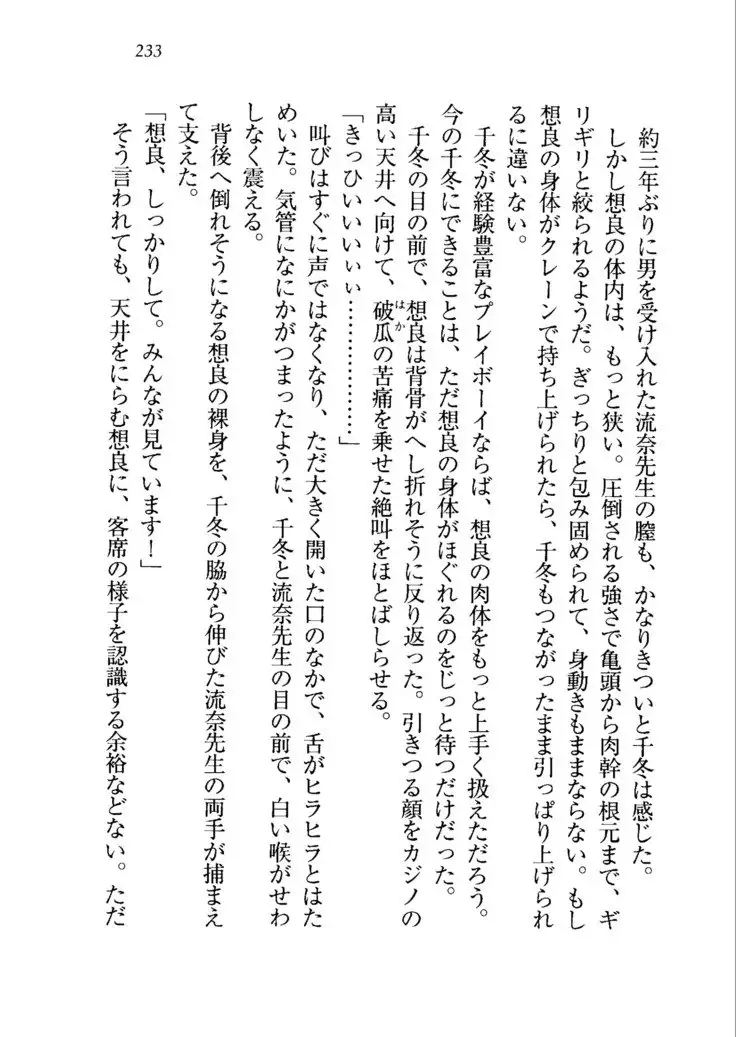 233
約三年ぶりに男を受け入れた流奈先生の膣も、かなりきついと千冬は感じた。
しかし想良の体内は、もっと狭い。圧倒される強さで亀頭から肉幹の根元まで、ギ
リギリと絞られるようだ。ぎっちりと包み固められて、身動きもままならない。もし
想良の身体がクレーンで持ち上げられたら、千冬もつながったまま引っぱり上げられ
るに違いない。
千冬が経験豊富なプレイボーイならば、想良の肉体をもっと上手く扱えただろう。
今の千冬にできることは、ただ想良の身体がほぐれるのをじっと待つだけだった。
千冬の目の前で、想良は背骨がへし折れそうに反り返った。引きつる顔をカジノの
高い天井へ向けて、破瓜はかの苦痛を乗せた絶叫をほとばしらせる。
「きっひいいいいぃぃ………………」
叫びはすぐに声ではなくなり、ただ大きく開いた口のなかで、舌がヒラヒラとはた
めいた。気管になにかがつまったように、千冬と流奈先生の目の前で、白い喉がせわ
しなく震える。
背後へ倒れそうになる想良の裸身を、千冬の脇から伸びた流奈先生の両手が捕まえ
て支えた。
「想良、しっかりして。みんなが見ています！」
そう言われても、天井をにらむ想良に、客席の様子を認識する余裕などない。ただ